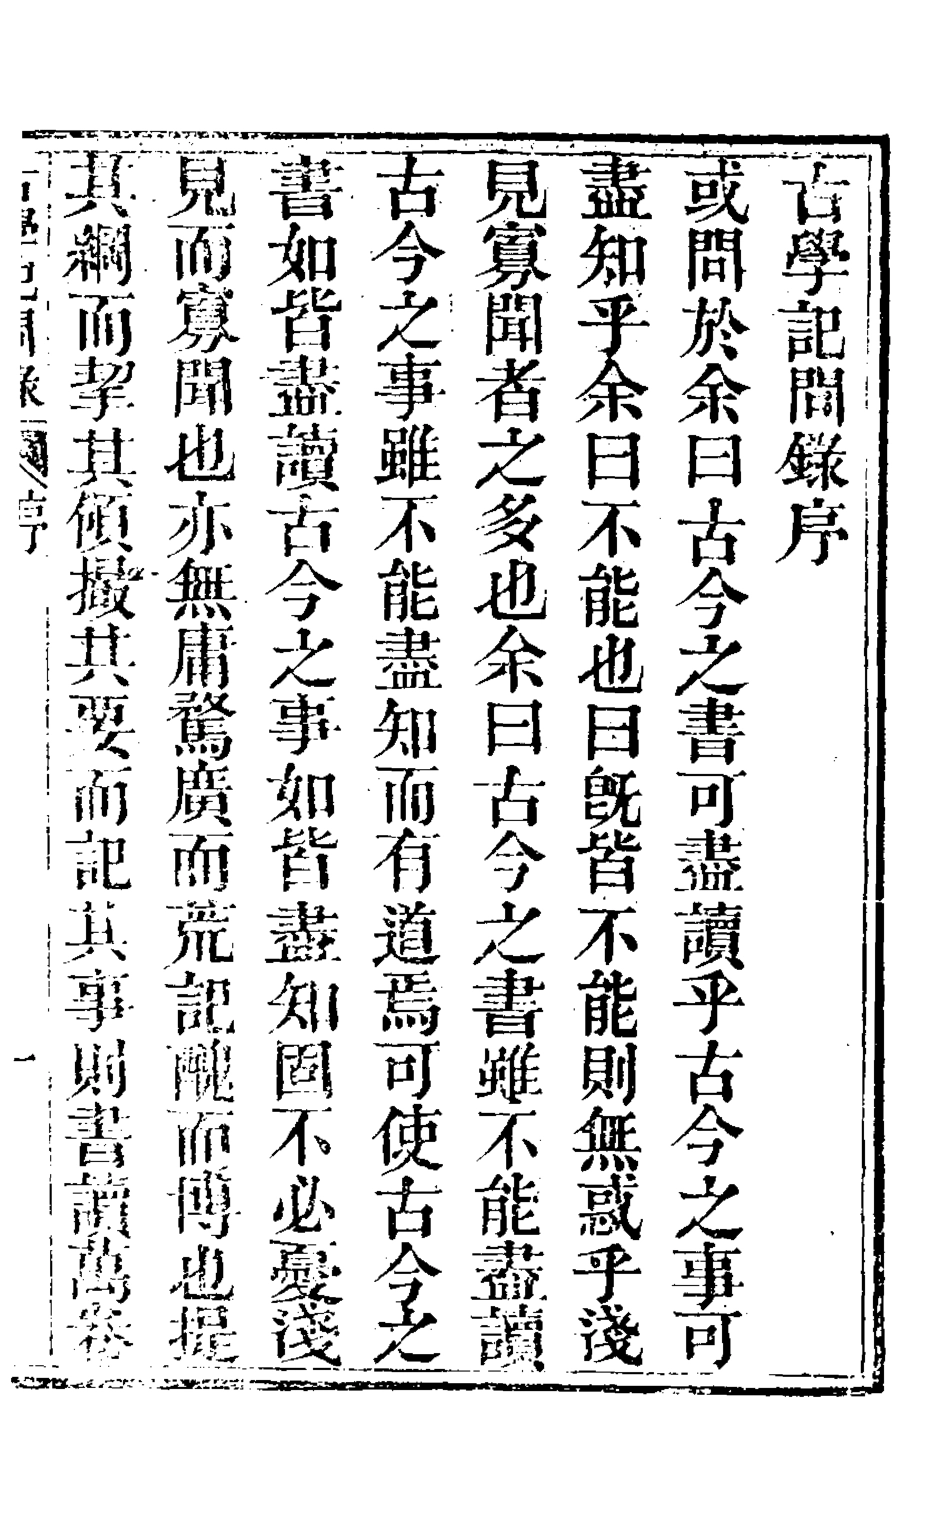 古學記聞錄序
或問於余曰古今之書可盡讀乎古今之事可
盡知乎余曰不能也曰旣皆不能則無惑乎淺
見寡聞者之多也余曰古今之書雖不能盡讀
古今之事雖不能盡知而有道焉可使古今之
書如皆盡讀古今之事如皆盡知固不必憂淺
見而寡聞也亦無庸騖廣而荒記醜而博也提
其綱而挈其傾撮其要而記其事則書讀萬卷
古學記聞錄 序 一